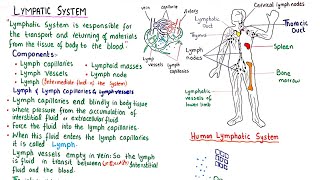 LYMPATIC SYSTEM
"Lymphatic System is responsible for
the transport and returning of materials
from the tissue of body to the blood"
Components:
Lymph capillaries
Lymphoid masses
Lymph Vessels
Lymph nodes
Lymph (Intermediate fluid of the System)
Lymph & Lymph Capillaries & Lymph vessels
Lymph capillaries end blindly in body tissue
where pressure from the accumulation of
interstitial fluid or extracellular fluid
Force the fluid into the lymph capillaries.
When this fluid enters the lymph capillaries
it is called Lymph.
Lymph vessels empty in vein: So the lymph
is fluid in transit between interstitial
fluid and the blood.
vein
capillary
Artery
Lymph vessels
Lymph capillaries
Lymphatic
Duct
Thymus
Lymph
Nodes
Lymph
vessels
Lymphatic
vessels of
lower limb
Cervical lymph nodes
Thoracic
Duct
Spleen
Bone
marrow
Human Lymphatic System